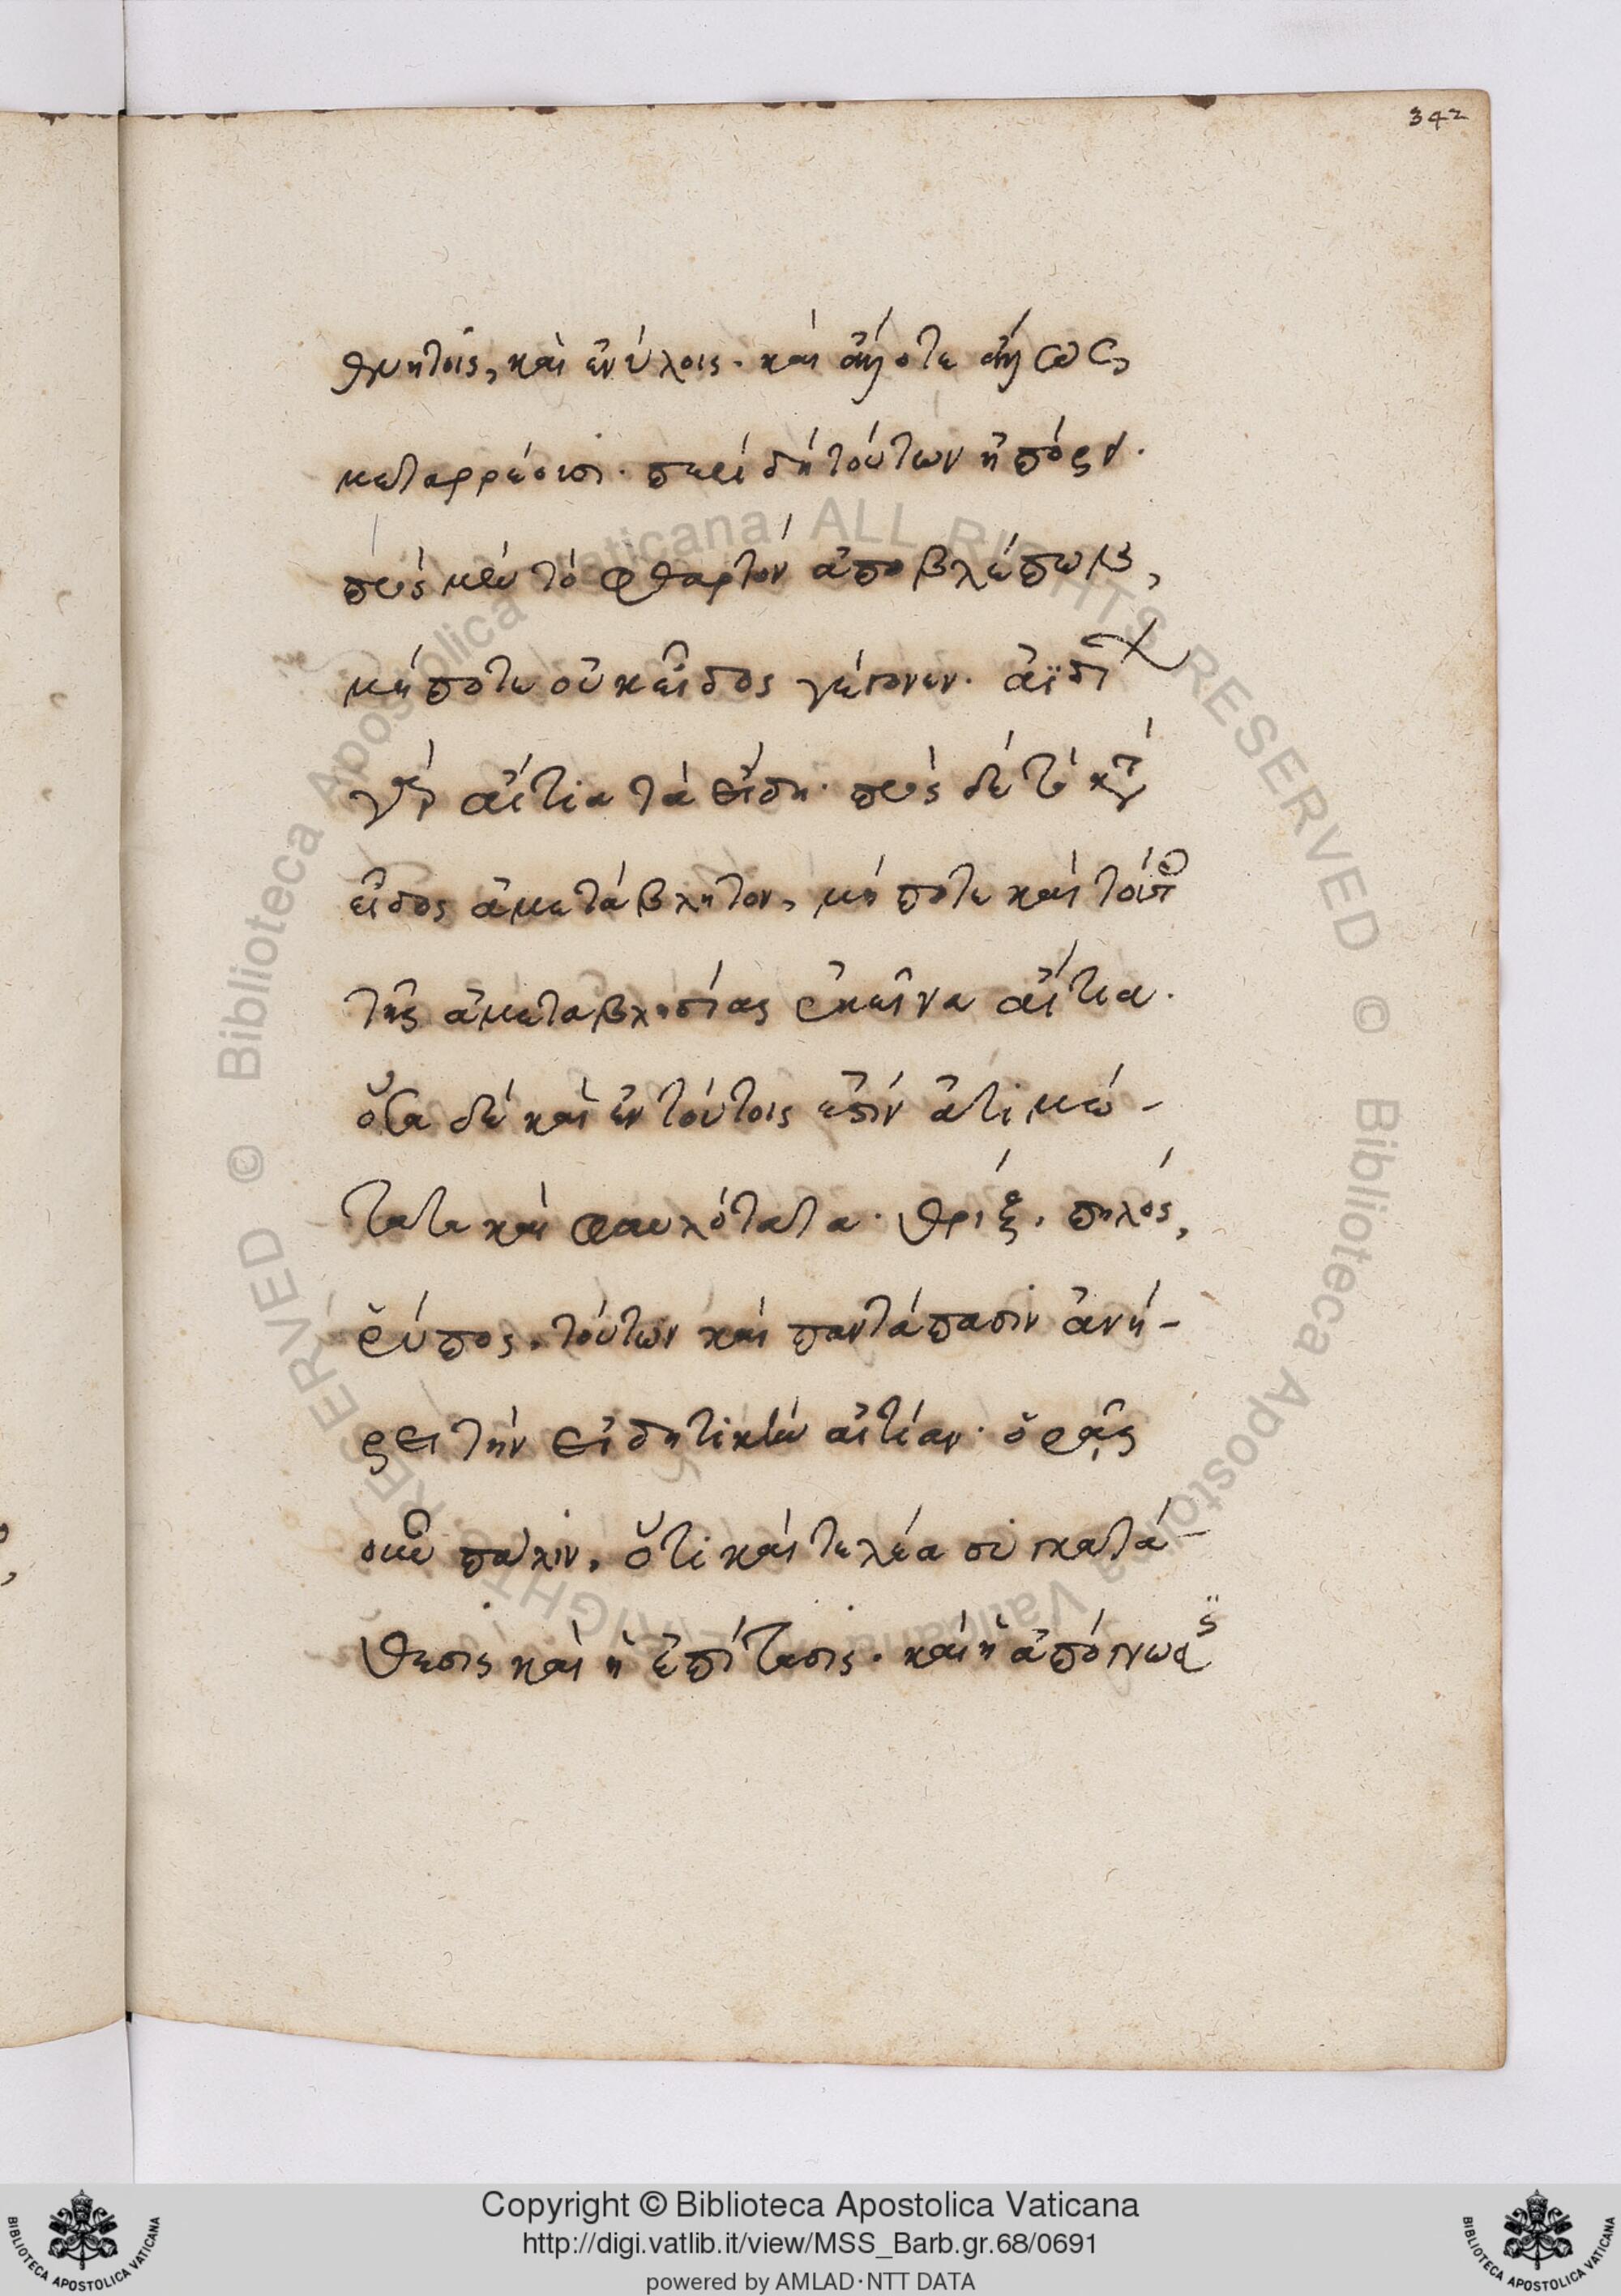 342
θνητοῖς, καὶ ἐνύλοις. καὶ ἄλλοτε ἄλλως
μεταρρέουσι. περὶ δὴ τούτων ἠπόρει.
πρὸς μὲν τὸ φθαρτὸν ἀποβλέπων,
μήποτε οὐκ εἶδος γέγονεν. ἀϊδί
γὰρ αἴτια τὰ εἴδη. πρὸς δὲ τὸ κατ
εἶδος ἀμετάβλητον, μή ποτε καὶ τοῦ
τῆς ἀμεταβλησίας ἐκεῖνα αἴτια.
ὅσα δὲ καὶ ἐν τούτοις ἐστὶν ἀτιμώ-
τατα καὶ φαυλότατα. θρίξ, πηλός,
ῥύπος. τούτων καὶ παντάπασιν ἀνῄ-
ρει τὴν εἰδητικὴν αἰτίαν. ὁρᾷς
οὖν πάλιν, ὅτι καὶ τελέα συγκατά-
θεσις καὶ ἡ ἐπίτασις. καὶ ἡ ἀπόγνωσ
Copyright © Biblioteca Apostolica Vaticana
http://digi.vatlib.it/view/MSS_Barb.gr.68/0691
powered by AMLAD·NTT DATA
BIBLIOTECA APOSTOLICA VATICANA
BIBLIOTECA APOSTOLICA VATICANA